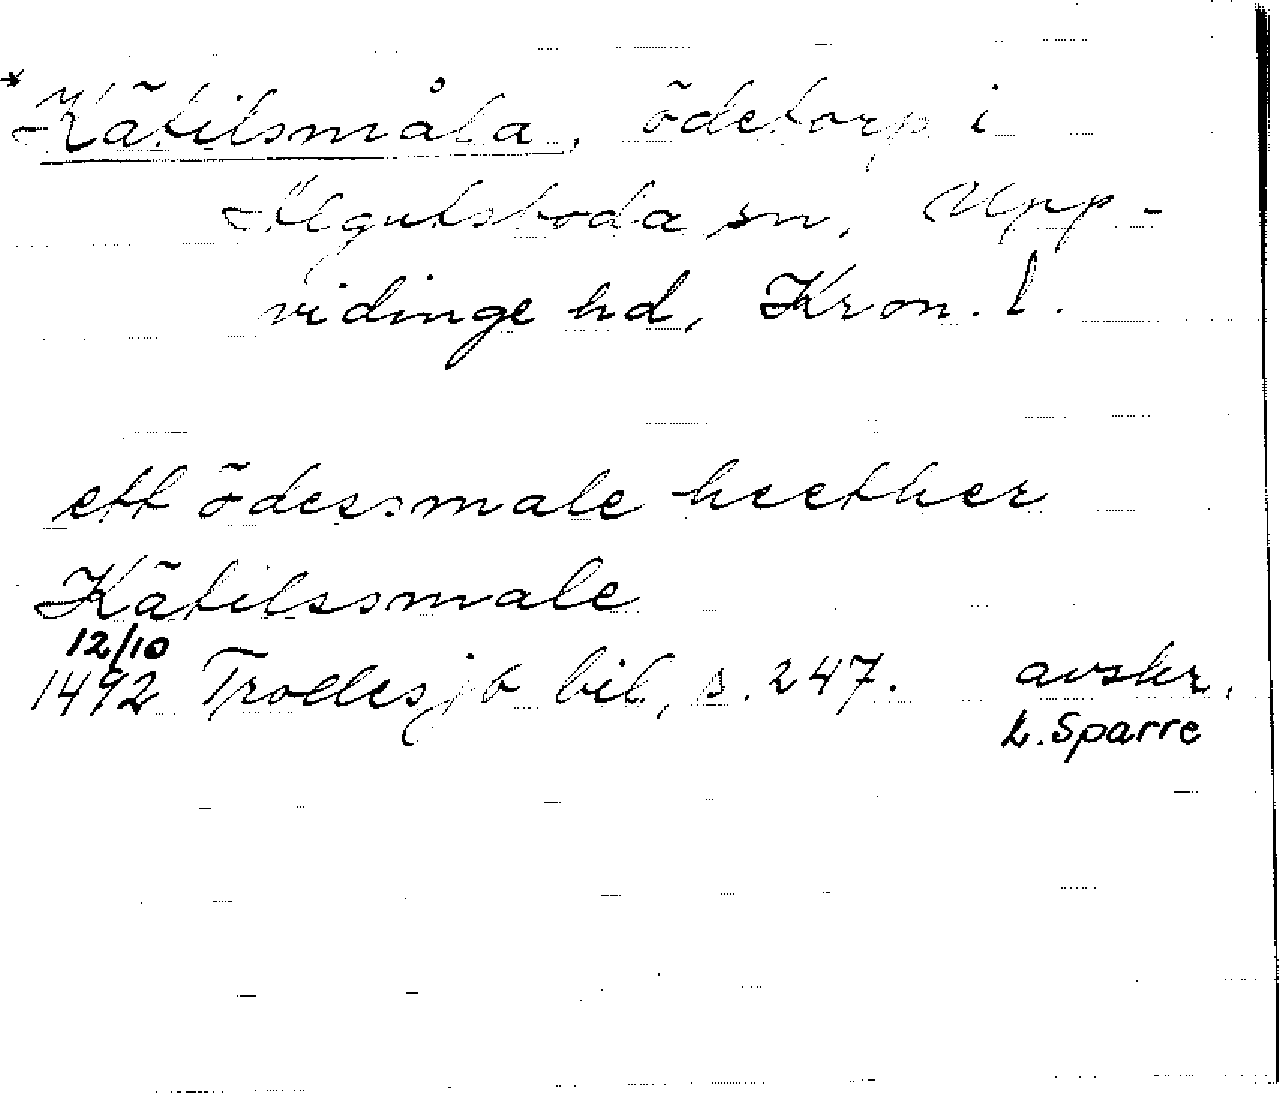 *Kätilsmåla, ödetorp i
Älgutsboda sn, Upp-
vidinge hd, Kron. l.
ett ödessmale heether
Kätilssmale
12/10
1492 Trolles jb bil, s. 247. avskr.
L. Sparre